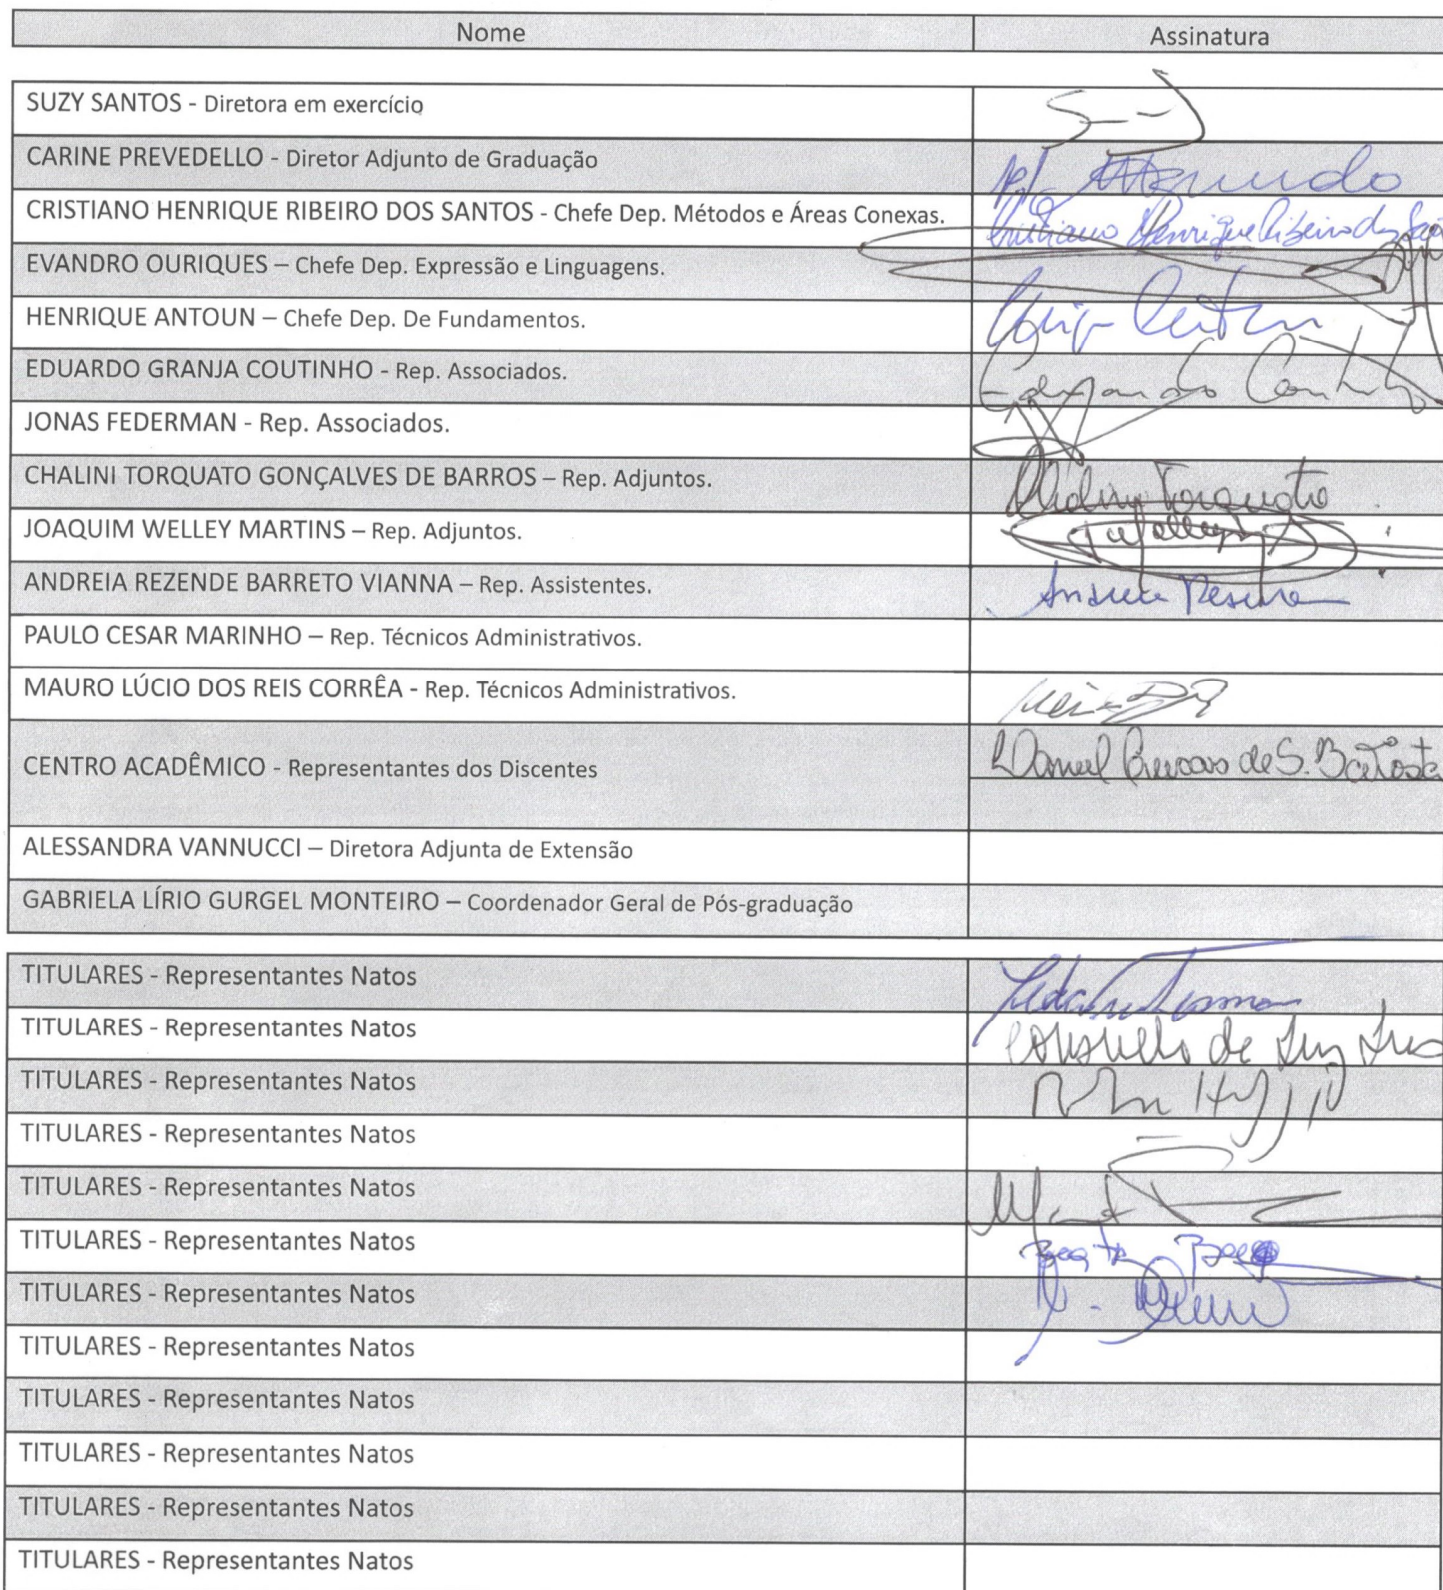 Nome Assinatura
SUZY SANTOS - Diretora em exercício
CARINE PREVEDELLO - Diretor Adjunto de Graduação
CRISTIANO HENRIQUE RIBEIRO DOS SANTOS - Chefe Dep. Métodos e Áreas Conexas. Cristiano Henrique Ribeiro dos
EVANDRO OURIQUES – Chefe Dep. Expressão e Linguagens.
HENRIQUE ANTOUN – Chefe Dep. De Fundamentos.
EDUARDO GRANJA COUTINHO - Rep. Associados. Eduardo Coutinho
JONAS FEDERMAN - Rep. Associados.
CHALINI TORQUATO GONÇALVES DE BARROS – Rep. Adjuntos. Chalini Torquato
JOAQUIM WELLEY MARTINS – Rep. Adjuntos.
ANDREIA REZENDE BARRETO VIANNA – Rep. Assistentes. Andreia Resende
PAULO CESAR MARINHO – Rep. Técnicos Administrativos.
MAURO LÚCIO DOS REIS CORRÊA - Rep. Técnicos Administrativos.
CENTRO ACADÊMICO - Representantes dos Discentes Daniel de S.
ALESSANDRA VANNUCCI – Diretora Adjunta de Extensão
GABRIELA LÍRIO GURGEL MONTEIRO – Coordenador Geral de Pós-graduação
TITULARES - Representantes Natos
TITULARES - Representantes Natos de
TITULARES - Representantes Natos
TITULARES - Representantes Natos
TITULARES - Representantes Natos
TITULARES - Representantes Natos
TITULARES - Representantes Natos
TITULARES - Representantes Natos
TITULARES - Representantes Natos
TITULARES - Representantes Natos
TITULARES - Representantes Natos
TITULARES - Representantes Natos